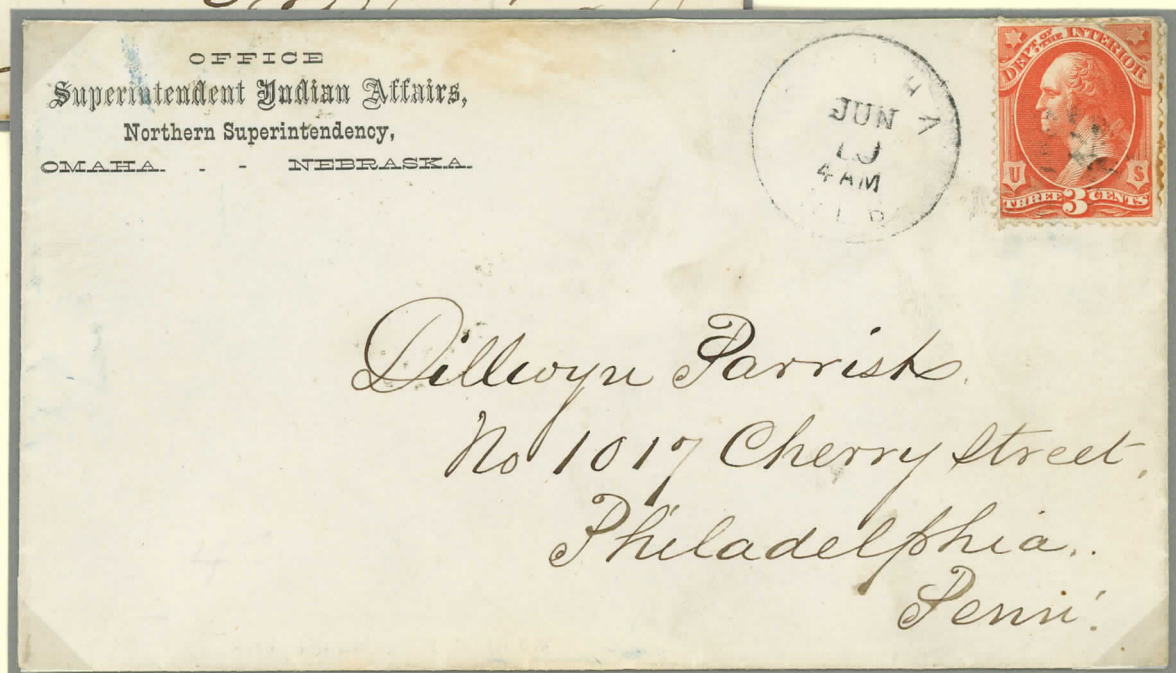 OFFICE
Superintendent Indian Affairs,
Northern Superintendency,
OMAHA. - - NEBRASKA.
JUN
4 AM
DEPT. OF THE INTERIOR
U S
THREE 3 CENTS
Dillwyn Parrish
No 1017 Cherry Street,
Philadelphia.
Penn.